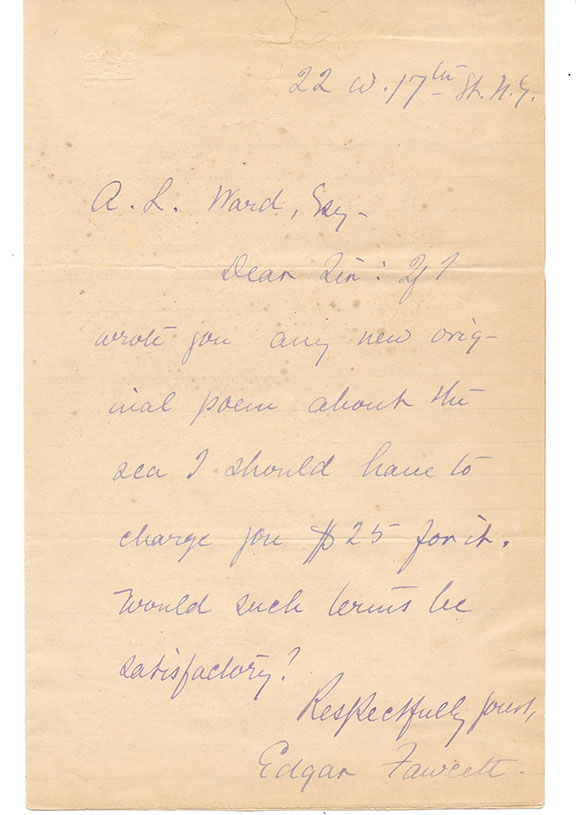 22 W. 17th St. N.Y.
A. L. Ward, Esq-
Dear Sir: If I
wrote you any new orig-
inal poem about the
sea I should have to
charge you $25 for it.
Would such terms be
satisfactory?
Respectfully yours,
Edgar Fawcett.